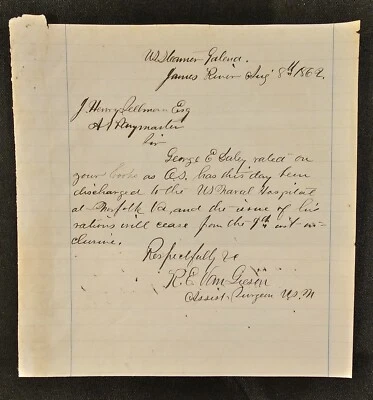 US Steamer Galena.
James River Aug 8th 1862.
J. Henry Sellman Esq
A. Paymaster
Sir
George E. Saley rated on
your books as OS. has this day been
discharged to the US Naval Hospital
at Norfolk Va, and the issue of his
rations will cease from the 9th inst in-
clusive.
Respectfully &c
R. E. Van Gieson
Assist. Surgeon U.S.N